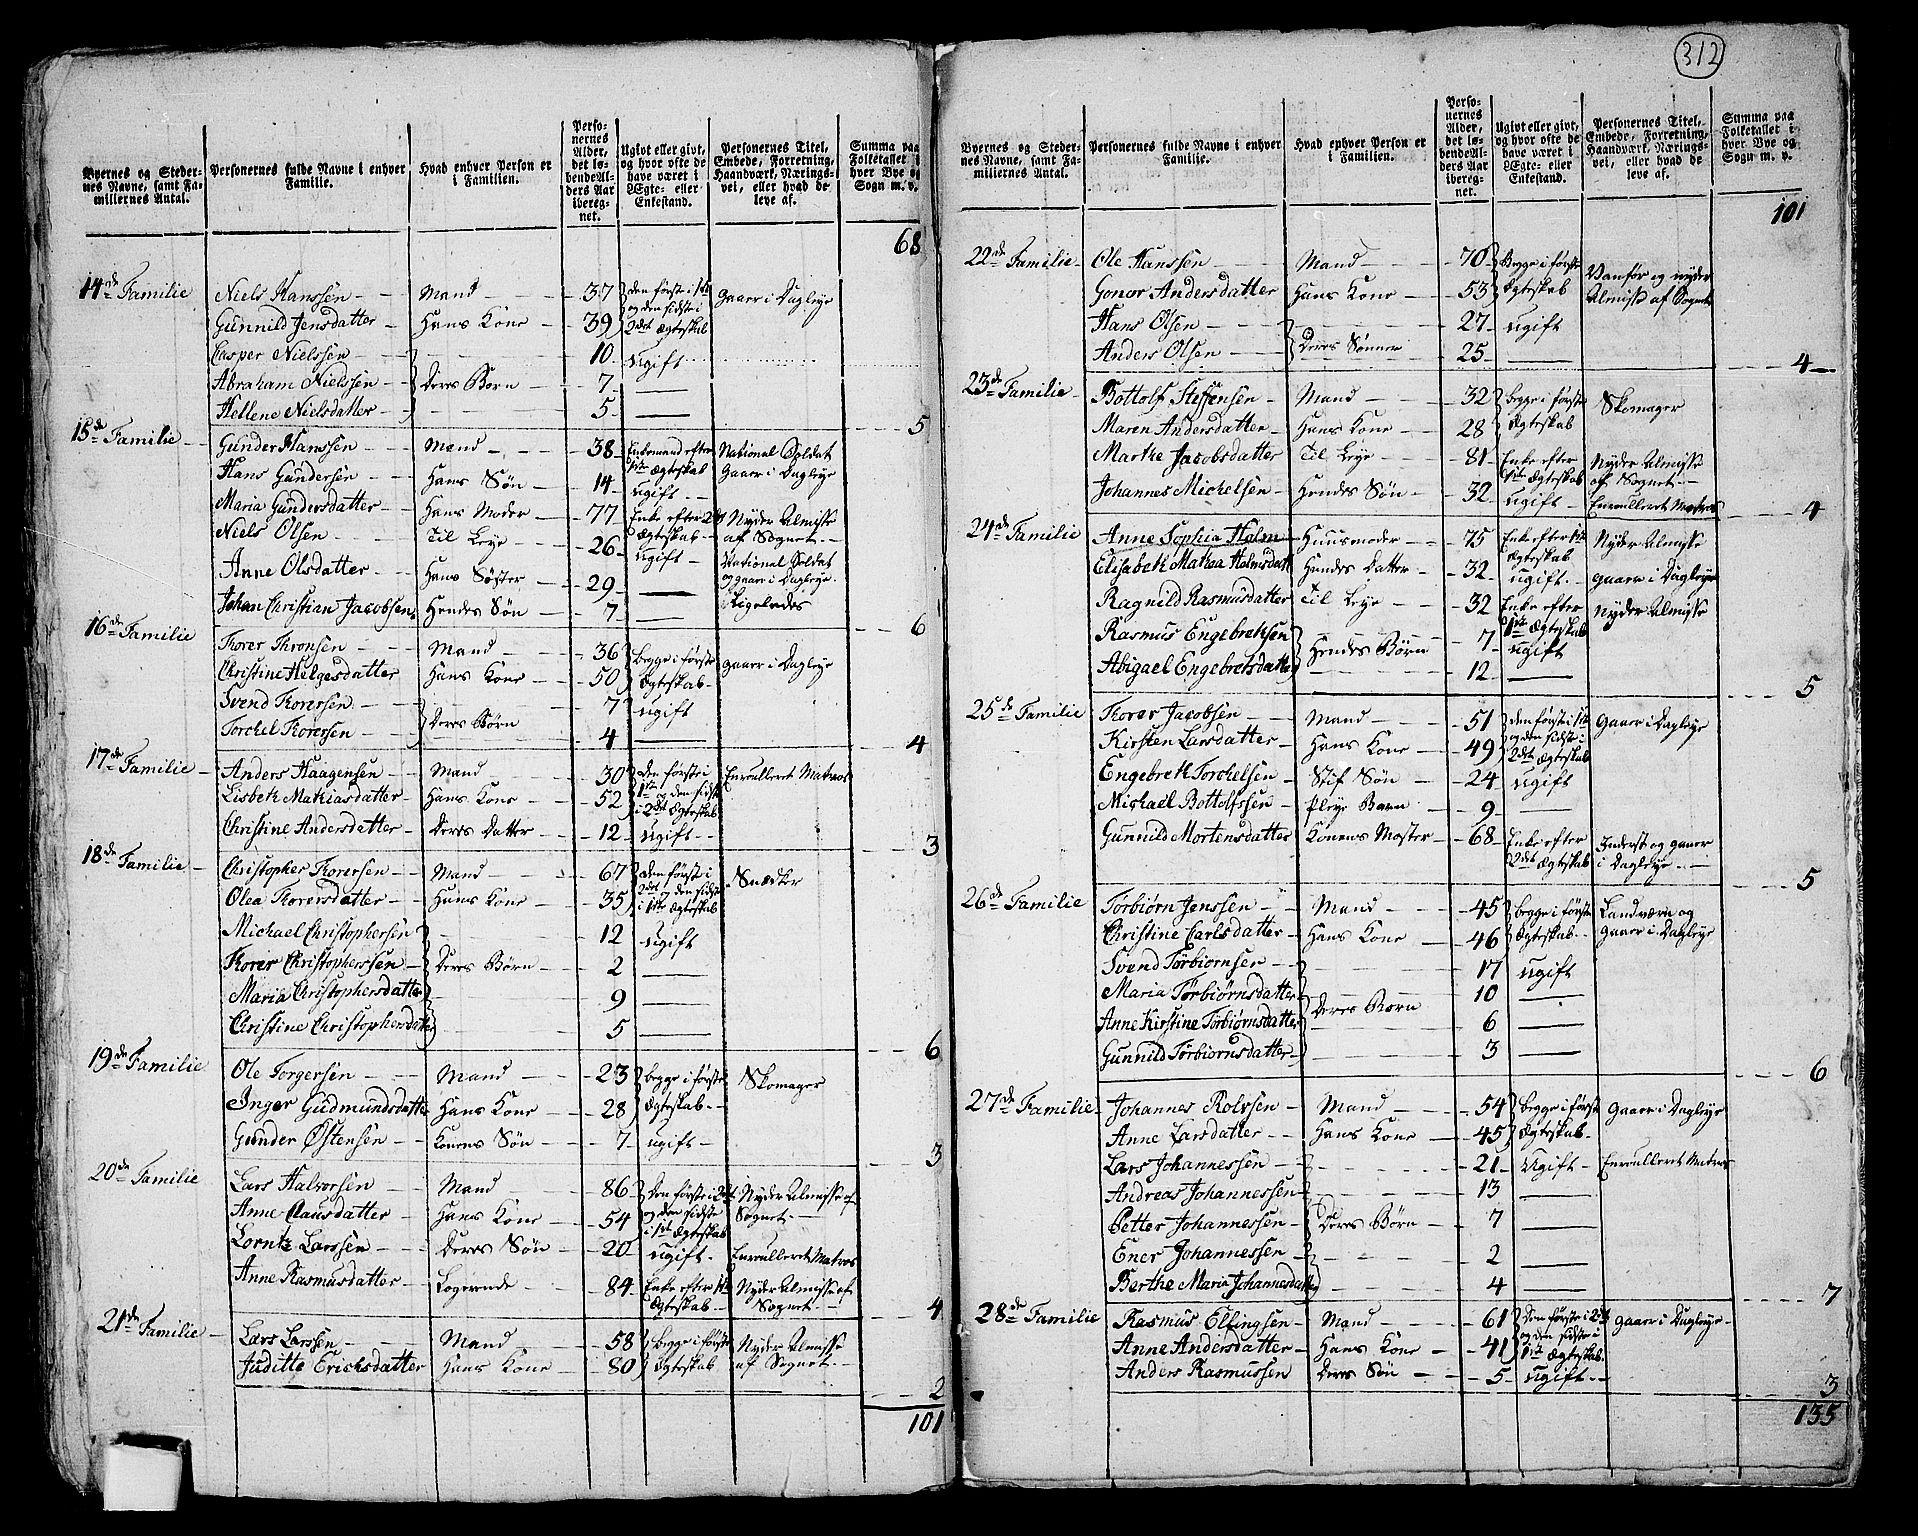 312
Byernes og Stedernes Navne, samt Familiernes Antal.
Personernes fulde Navne i enhver Familie.
Hvad enhver Person er i Familien.
Personernes Alder, det løbende Alders Aar iberegnet.
Ugivt eller givt, og hvor ofte de have været i Ægte- eller Enkestand.
Personernes Titel, Embede, Forretning, Haandværk, Næringsvei, eller hvad de leve af.
Summa paa Folketallet i hver Bye og Sogn m. v.
68
14de Familie Niels Hanssen Mand 37 den første i 1ste gaaer i Dagleye
Gunnild Jensdatter Hans Kone 39 og den sidste i 2det Ægteskab
Casper Nielssen 10 Ugift
Abraham Nielssen Deres Børn 7
Hellene Nielsdatter 5
5
15de Familie Gunder Hanssen Mand 38 Enkemand efter 1ste Ægteskab National Soldat gaaer i Dagleye
Hans Gundersen Hans Søn 14 ugift
Maria Gundersdatter Hans Moder 77 Enke efter 2det Ægteskab Nyder Almisse af Sognet
Niels Olsen Til Leye 26 ugift National Soldat og gaaer i Dagleye
Anne Olsdatter Hans Søster 29 Ligeledes
Johan Christian Jacobsen Hendes Søn 7
6
16de Familie Thorer Thronsen Mand 36 begge i første gaaer i Dagleye
Christine Helgesdatter Hans Kone 50 Ægteskab
Svend Thorersen 7 ugift
Torchel Thorersen Deres Børn 4
4
17de Familie Anders Haagensen Mand 30 den første i Enroulleret Matros
Lisbeth Mathiasdatter Hans Kone 52 1ste og den sidste i 2det Ægteskab
Christine Andersdatter Deres Datter 12 ugift
3
18de Familie Christopher Thorersen Mand 67 den første i Snedker
Olea Thorersdatter Hans Kone 35 2det og den sidste i 1ste Ægteskab
Michael Christophersen 12 ugift
Thorer Christopherssen Deres Børn 2
Maria Christophersdatter 9
Christine Christophersdatter 5
6
19de Familie Ole Torgersen Mand 23 begge i første Skomager
Inger Gudmundsdatter Hans Kone 28 Ægteskab
Gunder Østensen Konens Søn 7 ugift
3
20de Familie Lars Halvorsen Mand 86 Den første i 2det Nyder Almisse af
Anne Clausdatter Hans Kone 54 og den sidste i 1ste Ægteskab Sognet
Lorntz Larssen Deres Søn 20 ugift Enroulleret Matros
Anne Rasmusdatter Logerende 84 Enke efter 1ste Ægteskab Nyder Almisse af Sognet
4
21de Familie Lars Larssen Mand 58 begge i første Nyder Almisse
Juditte Erichsdatter Hans Kone 80 Ægteskab af Sognet
2
101
Byernes og Stedernes Navne, samt Familiernes Antal.
Personernes fulde Navne i enhver Familie.
Hvad enhver Person er i Familien.
Personernes Alder, det løbende Alders Aar iberegnet.
Ugivt eller givt, og hvor ofte de have været i Ægte- eller Enkestand.
Personernes Titel, Embede, Forretning, Haandværk, Næringsvei, eller hvad de leve af.
Summa paa Folketallet i hver Bye og Sogn m. v.
101
22de Familie Ole Hanssen Mand 70 Begge i første Vanfør og nyder
Gonor Andersdatter Hans Kone 53 Ægteskab Almisse af Sognet
Hans Olsen 27 ugift
Anders Olsen Deres Sønner 25
4
23de Familie Bottolf Steffensen Mand 32 begge i første Skomager
Maren Andersdatter Hans Kone 28 Ægteskab
Marthe Jacobsdatter Til Leye 81 Enke efter 1ste Ægteskab Nyder Almisse af Sognet
Johannes Michelsen Hendes Søn 32 ugift Enroulleret Matros
4
24de Familie Anne Sophia Holm Huusmoder 75 Enke efter 1ste Ægteskab Nyder Almisse
Elisabeth Mathea Holmsdatt Hendes Datter 32 ugift gaaer i Dagleye
Ragnild Rasmusdatter Til Leye 32 Enke efter 1ste Ægteskab Nyder Almisse
Rasmus Engebrethsen 7 ugift
Abigael Engebretsdatter Hendes Børn 12
5
25de Familie Thorer Jacobsen Mand 51 den første i 1ste gaaer i Dagleye
Kirsten Larsdatter Hans Kone 49 og den sidste i 2det Ægteskab
Engebreth Torchelsen Stif Søn 24 ugift
Michael Bottolfssen Pleye Barn 9
Gunnild Mortensdatter Konens Moster 68 Enke efter 2det Ægteskab Inderst og gaaer i Dagleye
5
26de Familie Torbiørn Jenssen Mand 45 begge i første Landværn og
Christine Carlsdatter Hans Kone 46 Ægteskab Gaaer i Dagleye
Svend Torbiørnsen 17 ugift
Maria Torbiørnsdatter 10
Anne Kirstine Torbiørnsdatter Deres Børn 6
Gunnild Torbiørnsdatter 3
6
27de Familie Johannes Rolvsen Mand 54 begge i første gaaer i Dagleye
Anne Larsdatter Hans Kone 45 Ægteskab
Lars Johannessen 21 Ugift Enroulleret Matros
Andreas Johannessen 13
Petter Johannessen Deres Børn 7
Ener Johannessen 2
Berthe Maria Johannesdatter 4
7
28de Familie Rasmus Elfingsen Mand 61 Den første i 2det gaaer i Dagleye
Anne Andersdatter Hans Kone 41 og den sidste i 1ste Ægteskab
Anders Rasmussen Deres Søn 5 ugift
3
135